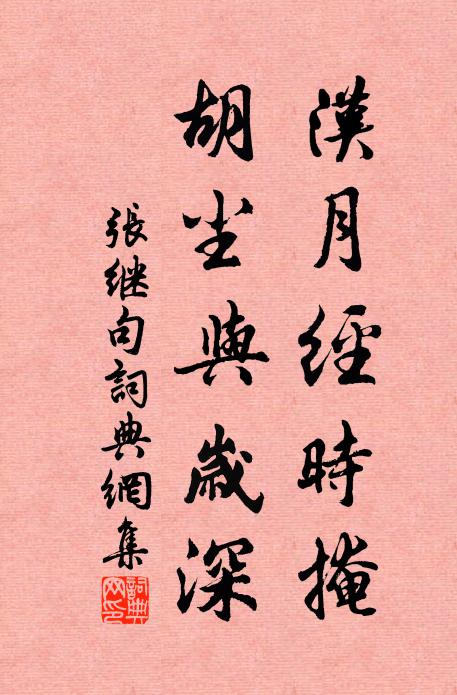 漢月經時掩
胡尘與歲深
張继句詞典網集
詞典網印